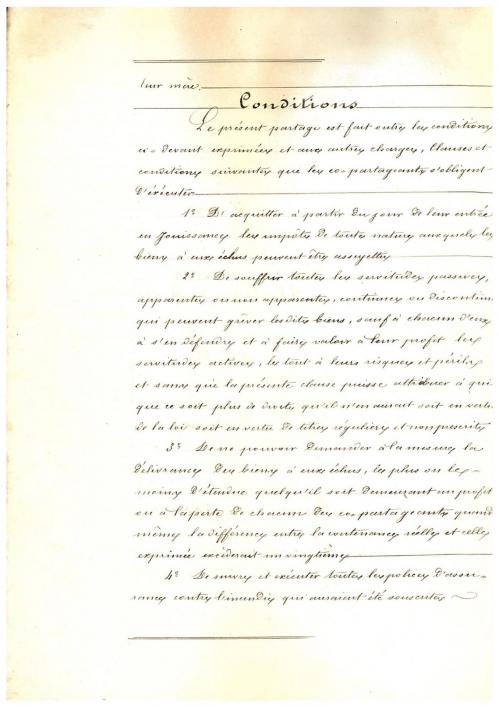 leur mère.
Conditions
Le présent partage est fait outre les conditions
ci-devant exprimées et aux autres charges, clauses et
conditions suivantes que les co-partageants s'obligent
d'exécuter
1º D'acquitter à partir du jour de leur entrée
en jouissance les impôts de toutes nature auxquels les
biens à eux échus peuvent être assujettis
2º De souffrir toutes les servitudes passives,
apparentes ou non apparentes, continues ou discontinues
qui peuvent grever lesdits biens, sauf à chacun d'eux
à s'en défendre et à faire valoir à leur profit les
servitudes actives, le tout à leurs risques et périls
et sans que la présente clause puisse attribuer à qui
que ce soit plus de droits qu'il n'en aurait soit en vertu
de la loi soit en vertu de titres réguliers et non prescrits
3º De ne pouvoir demander à la mesure la
délivrance des biens à eux échus, les plus ou le
moins d'étendue quelqu'il soit demeurant au profit
ou à la perte de chacun des co-partageants quand
même la différence entre la contenance réelle et celle
exprimée excéderait un vingtième
4º De suivre et exécuter toutes les polices d'assu-
rances contre l'incendie qui auraient été souscrites